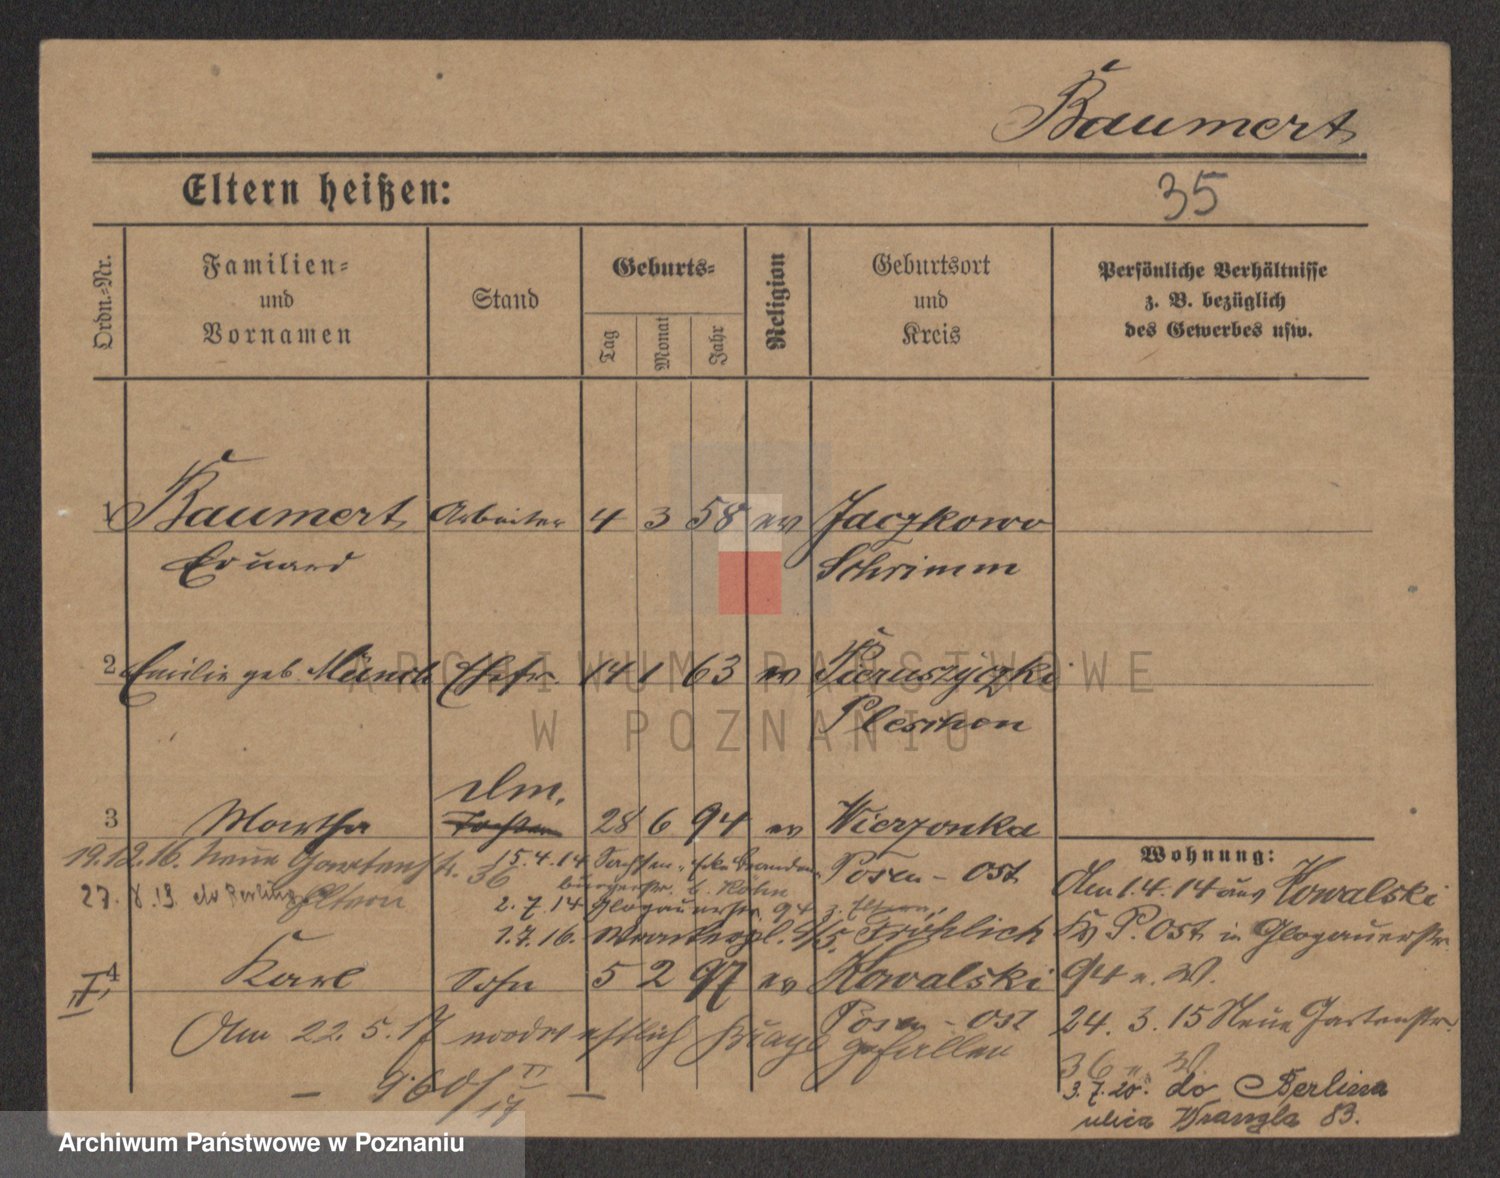 Baumert
Eltern heißen:
35
Ordn.-Nr.
Familien-
und
Vornamen
Stand
Geburts-
Tag
Monat
Jahr
Religion
Geburtsort
und
Kreis
Persönliche Verhältnisse
z. B. bezüglich
des Gewerbes usw.
1 Baumert Arbeiter 4 3 58 ev Jaczkowo
Eduard Schrimm
2 Emilie geb. Münch Ehefr. 14 1 63 ev Pieruszyczki
Pleschen
3 Martha 28 6 94 ev Wierzonka
Posen-Ost
19.12.16. Neue Gartenstr. 36
27. 8. 19. do Eltern
15.4.14
2.7.14 Glogauerstr. 94 z. Eltern
1.7.16. 4/5. Fröhlich
4 Karl Sohn 5 2 97 ev Kowalski
Posen-Ost
Am 22.5.17 nordöstlich gefallen
Wohnung:
Am 1.4.14 aus Kowalski
P. Ost in Glogauerstr.
94 n. W.
24. 3. 15 Neue Gartenstr.
36 n. W.
3.7.20. do Berlina
ulica Wrangla 83.
ARCHIWUM PAŃSTWOWE
W POZNANIU
Archiwum Państwowe w Poznaniu